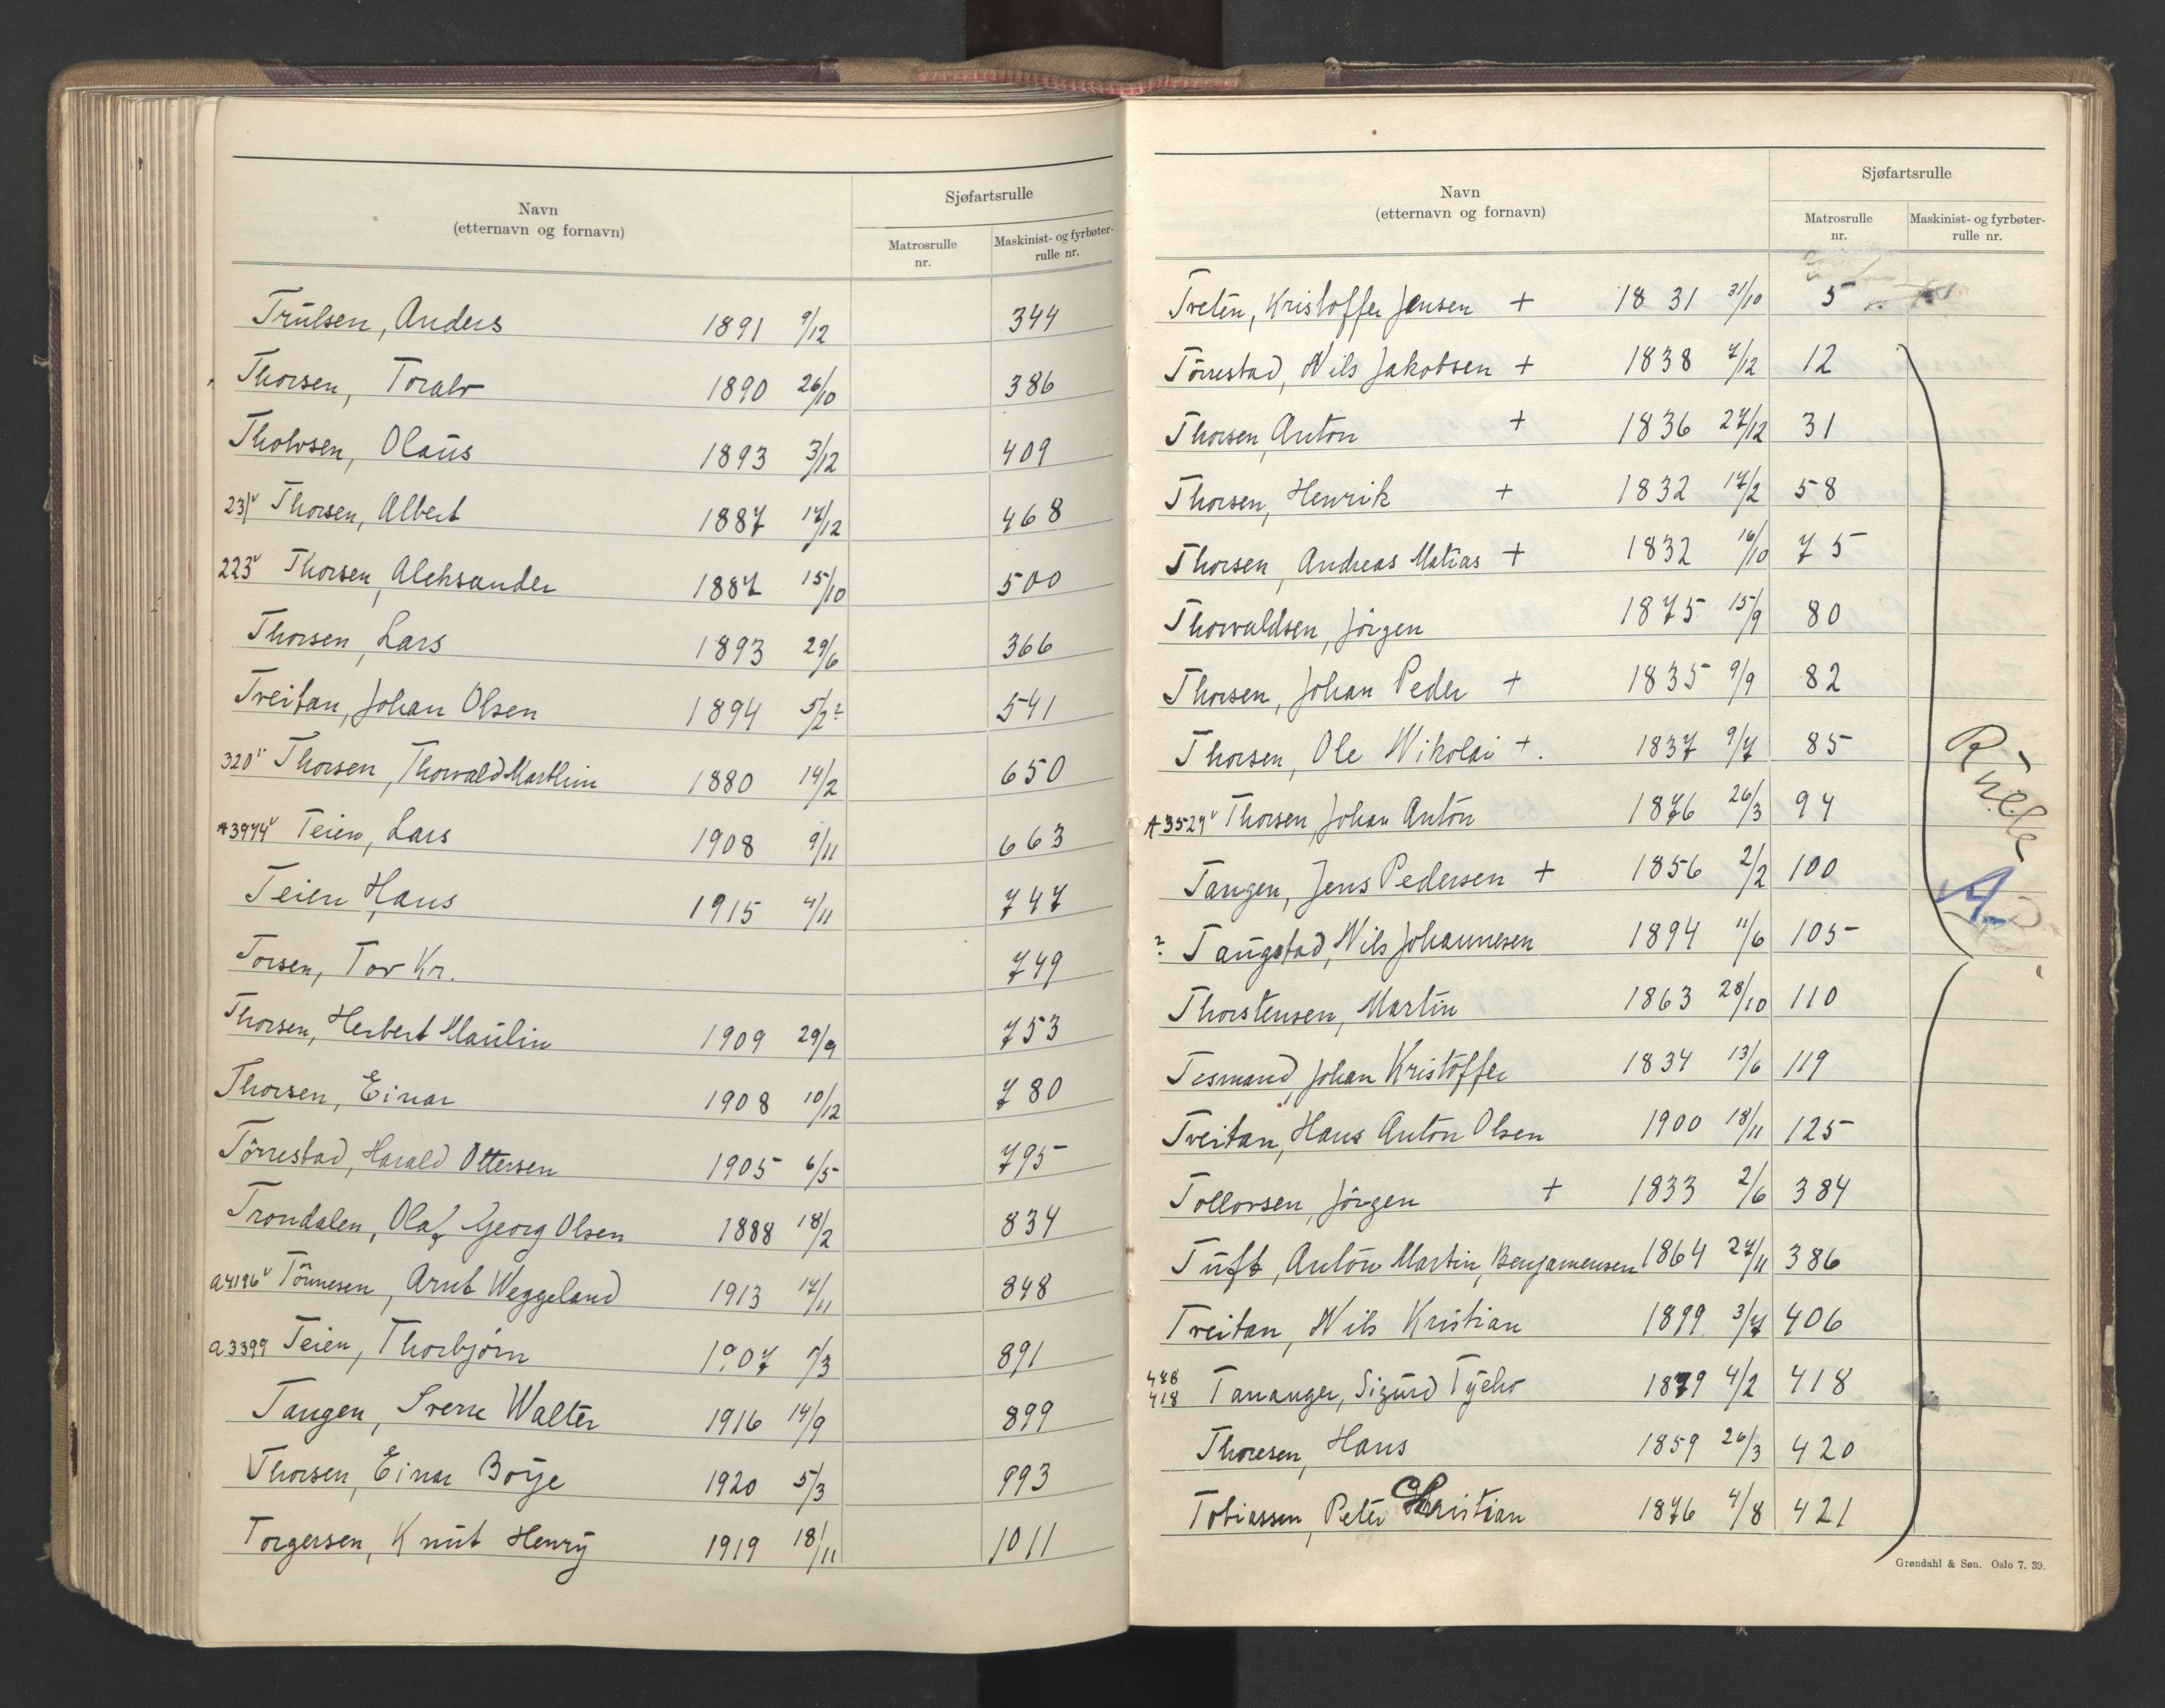 Navn
(etternavn og fornavn)
Sjøfartsrulle
Matrosrulle nr.
Maskinist- og fyrbøter-rulle nr.
Trulsen, Anders 1891 9/12 344
Thorsen, Toralv 1890 26/10 386
Tholvsen, Olaus 1893 3/12 409
231v Thorsen, Albert 1887 17/12 468
223v Thorsen, Aleksander 1887 15/10 500
Thorsen, Lars 1893 29/6 366
Tveitan, Johan Olsen 1894 5/2? 541
320v Thorsen, Thorvald Marthin 1880 14/2 650
A3974v Teien, Lars 1908 9/11 663
Teien, Hans 1915 4/11 747
Torsen, Tor Kr. 749
Thorsen, Herbert Maulin 1909 29/9 753
Thorsen, Einar 1908 10/12 780
Törrestad, Harald Ottersen 1905 6/5 795
Trondalen, Olaf Georg Olsen 1888 18/2 834
a4196v Tönnesen, Arnt Weggeland 1913 17/11 848
a3399 Teien, Thorbjörn 1907 1/3 891
Tangen, Sverre Walter 1916 14/9 899
Thorsen, Einar Börje 1920 5/3 993
Torgersen, Knut Henry 1919 18/11 1011
Navn
(etternavn og fornavn)
Sjøfartsrulle
Matrosrulle nr.
Maskinist- og fyrbøter-rulle nr.
Tveten, Kristoffer Jensen + 1831 31/10 5
Törrestad, Nils Jakobsen + 1838 7/12 12
Thorsen, Anton + 1836 27/12 31
Thorsen, Henrik + 1832 17/2 58
Thorsen, Andreas Matias + 1832 16/10 75
Thorvaldsen, Jörgen 1875 15/9 80
Thorsen, Johan Peder + 1835 9/9 82
Thorsen, Ole Nikolai +. 1837 9/7 85
A3529v Thorsen, Johan Anton 1876 26/3 94
Tangen, Jens Pedersen + 1856 2/2 100
? Taugstad, Nils Johannesen 1894 11/6 105
Thorstensen, Martin 1863 28/10 110
Tesmand, Johan Kristoffer 1834 13/6 119
Tveitan, Hans Anton Olsen 1900 18/11 125
Tollovsen, Jörgen + 1833 2/6 384
Tuft, Anton Martin, Benjamensen 1864 27/11 386
Tveitan, Nils Kristian 1899 3/7 406
478
418 Tananger, Sigurd Tycho 1879 4/2 418
Thoresen, Hans 1859 26/3 420
Tobiassen, Peter Christian 1876 4/8 421
Rulle
A
Grøndahl & Søn. Oslo 7. 39.